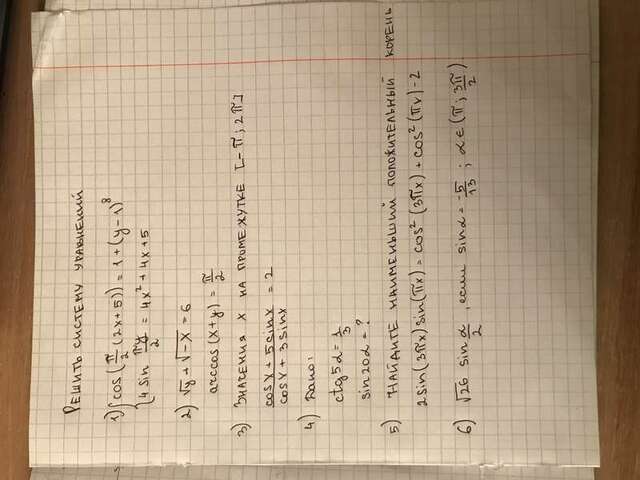 Решить систему уравнений
1) { cos(π/2 (2x+5)) = 1+(y-1)^8
4 sin πy/2 = 4x² + 4x + 5
2) √y + √-x = 6
arccos(x+y) = π/2
3) Значения x на промежутке [-π; 2π]
cosx + 5sinx / cosx + 3sinx = 2
4) Дано:
ctg5α = 1/3
sin20α = ?
5) Найдите наименьший положительный корень
2sin(3πx)sin(πx) = cos²(3πx) + cos²(πx) - 2
6) √26 sin α/2, если sinα = -5/13; α∈(π; 3π/2).